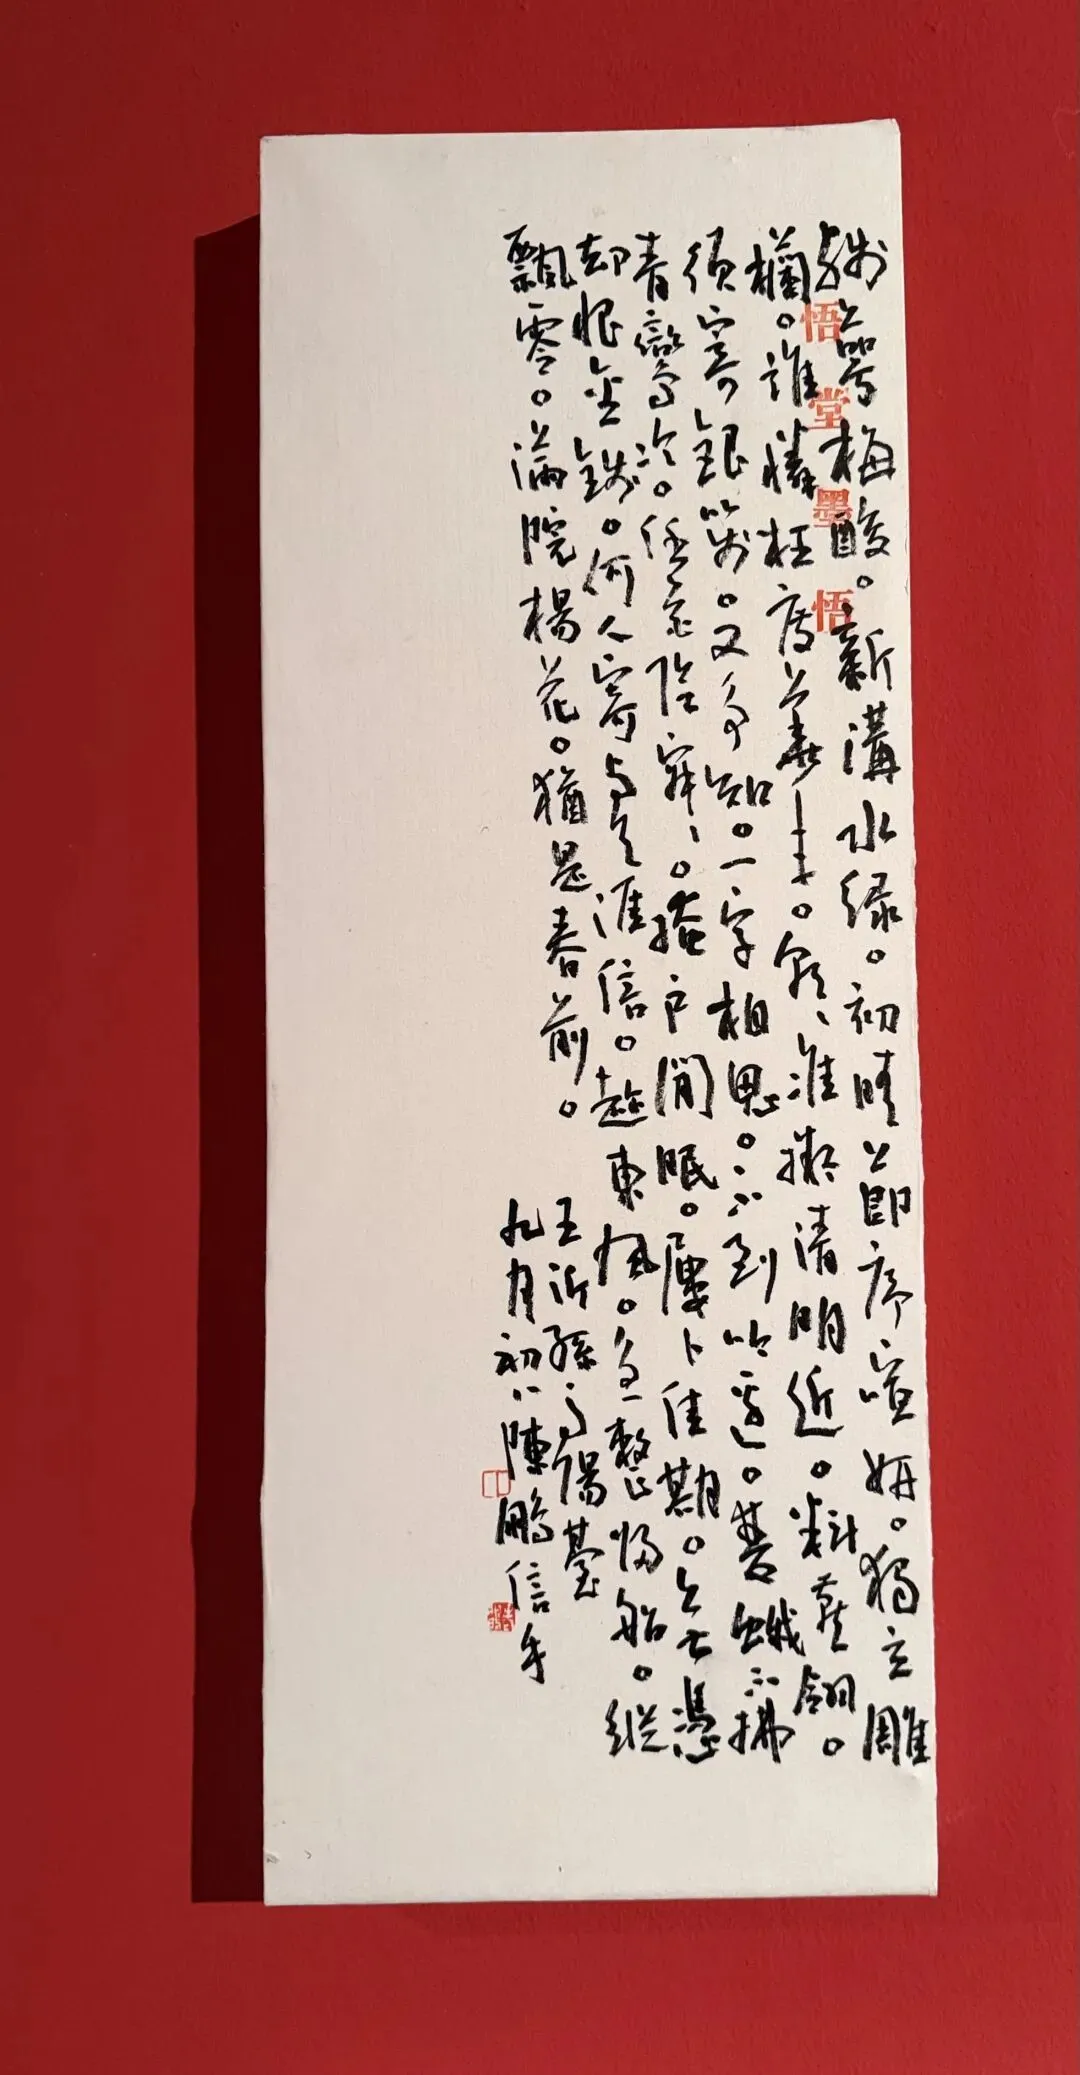 殘萼梅酸。新溝水绿。初晴節序暄妍。獨立雕
欄。誰憐枉度華年。朝〻準擬清明近。料燕翎。
須寄銀箋。又争知。一字相思。不到吟邊。雙蛾不拂
青鸞冷。任花陰寂〻。掩户閒眠。屢卜佳期。無憑
却恨金錢。何人寄與天涯信。趁東風。急整歸船。縱
飄零。滿院楊花。猶是春前。
王沂孫高陽臺
九月初八陳鵬信手
悟堂墨悟